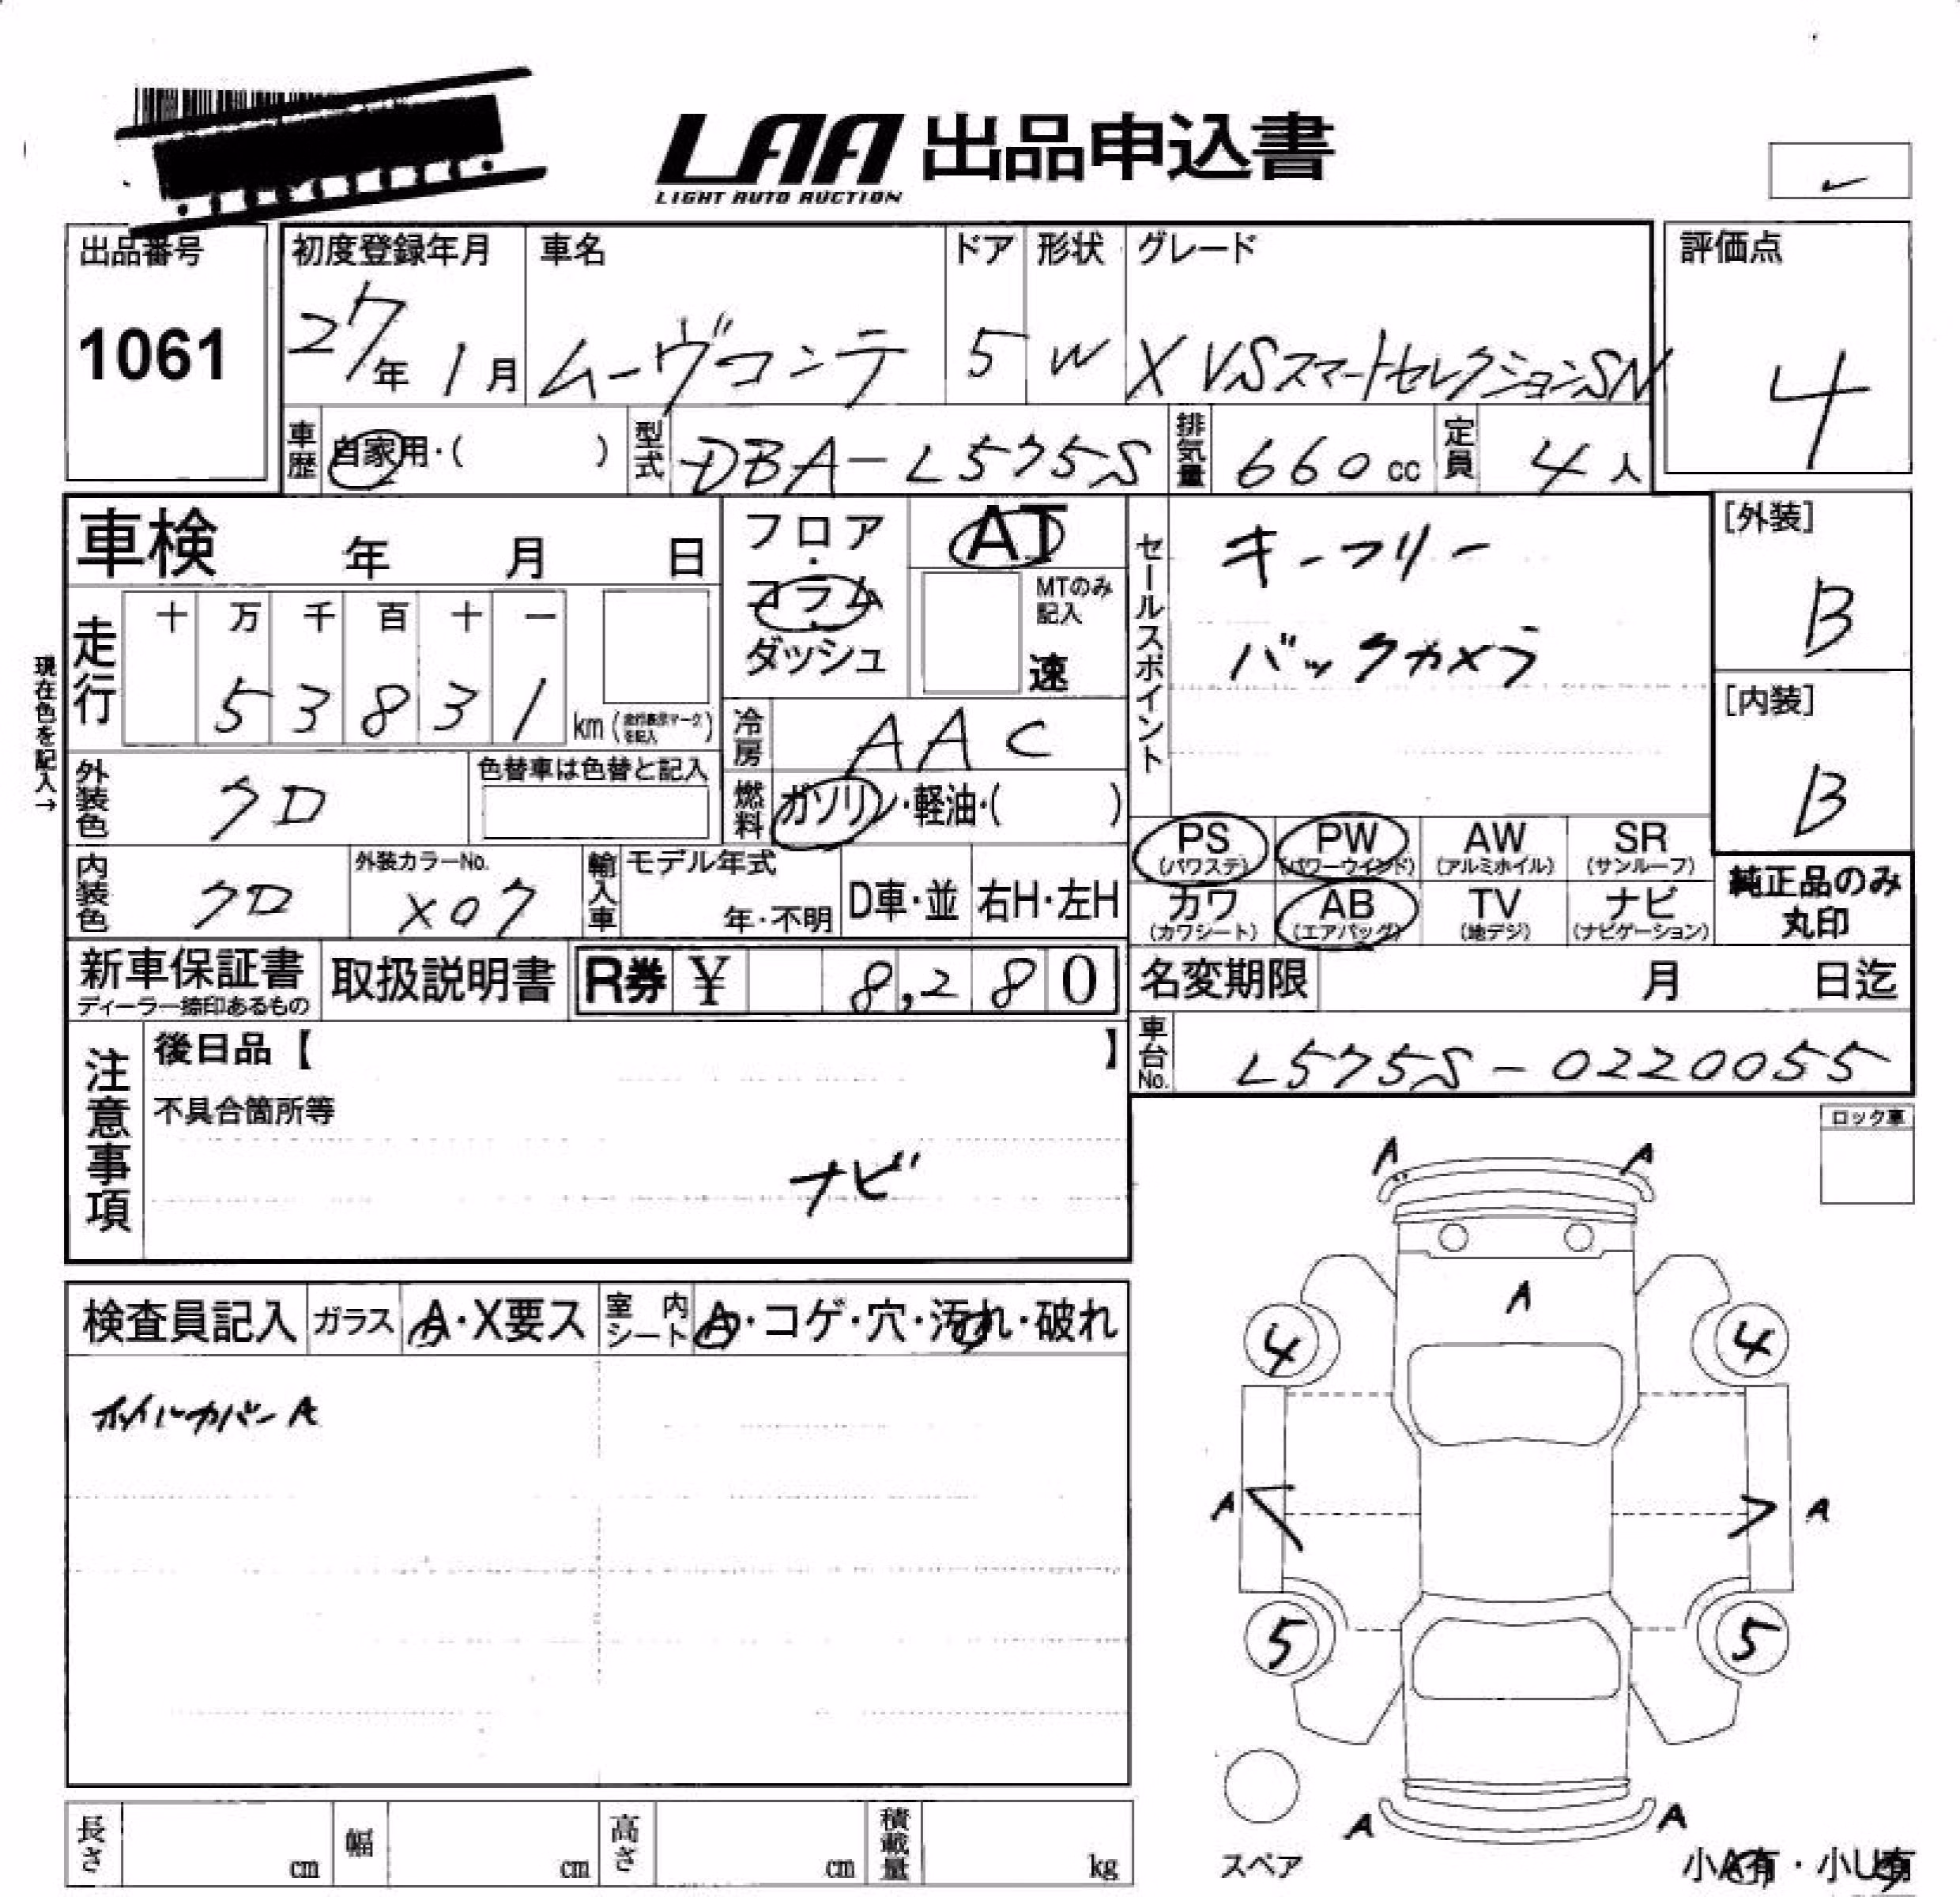 LAA 出品申込書
LIGHT AUTO AUCTION
出品番号
1061
初度登録年月 車名 ドア 形状 グレード
27年 1月 ムーヴコンテ 5 W X VSスマートセレクションSN
評価点
4
車歴 自家用・( ) 型式 DBA-L575S 排気量 660cc 定員 4人
車検 年 月 日
フロア・コラム・ダッシュ
AT
MTのみ記入
速
セールスポイント
キーフリー
バックカメラ
[外装]
B
[内装]
B
現在色を記入→
走行
十 万 千 百 十 一
5 3 8 3 1 km
冷房 AAC
外装色 クロ
色替車は色替と記入
燃料 ガソリン・軽油・( )
PS (パワステ) PW (パワーウインド) AW (アルミホイル) SR (サンルーフ)
カワ (カワシート) AB (エアバッグ) TV (地デジ) ナビ (ナビゲーション)
純正品のみ
丸印
内装色 クロ
外装カラーNo.
X07
輸入車 モデル年式
年・不明 D車・並 右H・左H
新車保証書
ディーラー捺印あるもの
取扱説明書 R券 ¥ 8,280
名変期限 月 日迄
車台No. L575S-0220055
注意事項
後日品【 】
不具合箇所等
ナビ
ロック車
検査員記入 ガラス A・X要ス 室内シート A・コゲ・穴・汚れ・破れ
ホイルカバーA
A A
A
4 4
A A
5 5
A A
スペア
小A有・小U有
長さ cm 幅 cm 高さ cm 積載量 kg